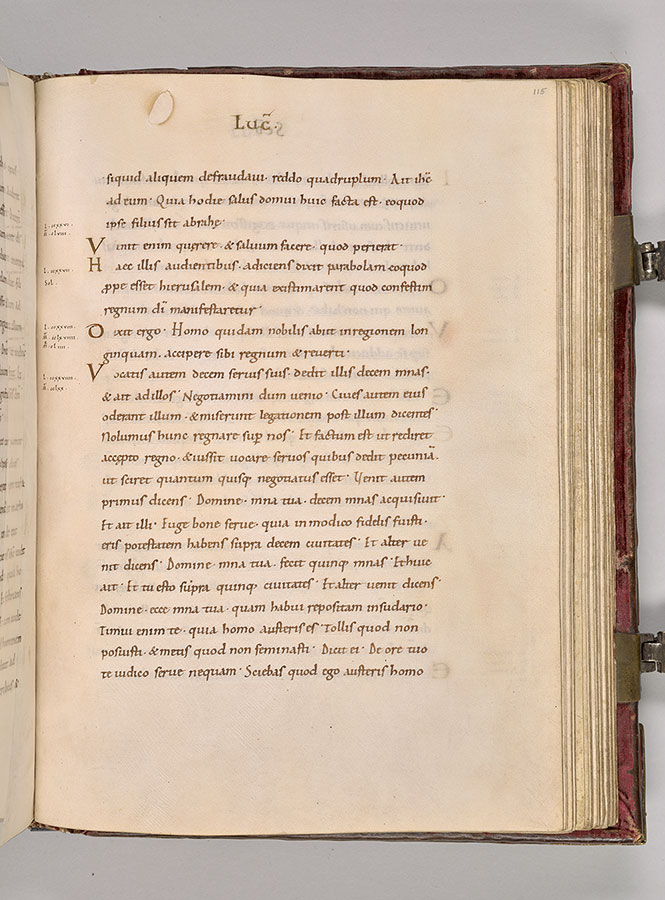 115
Luc̃.
siquid aliquem defraudavi· reddo quadruplum· Ait ihc̄
ad eum· Quia hodie salus domui huic facta est· eoquod
ipse filius sit abrahę·
Venit enim quęrere· & salvum facere· quod perierat·
Haec illis audientibus· adiciens dixit parabolam eoquod
ꝓpe esset hierusalem· & quia existimarent quod confestim
regnum dī manifestaretur·
Dixit ergo· Homo quidam nobilis abiit inregionem lon
ginquam· accipere sibi regnum & reverti·
Vocatis autem decem servis suis· dedit illis decem mnas·
& ait adillos· Negotiamini dum venio· Cives autem eius
oderant illum· & miserunt legationem post illum dicentes·
Nolumus hunc regnare sup̄ nos· Et factum est ut rediret
accepto regno· & iussit vocare servos quibus dedit pecuniā·
ut sciret quantum quisq; negotiatus esset· Venit autem
primus dicens· Domine· mna tua· decem mnas acquisivit·
Et ait illi· Euge bone serve· quia inmodico fidelis fuisti·
eris potestatem habens supra decem civitates· Et alter ve
nit dicens· Domine· mna tua· fecit quinq; mnas· Et huic
ait· Et tu esto supra quinq; civitates· Et alter venit dicens·
Domine· ecce mna tua· quam habui repositam insudario·
Timui enim te· quia homo austeris es· Tollis quod non
posuisti· & metis quod non seminasti· Dicit ei· De ore tuo
te iudico serve nequam· Sciebas quod ego austeris homo